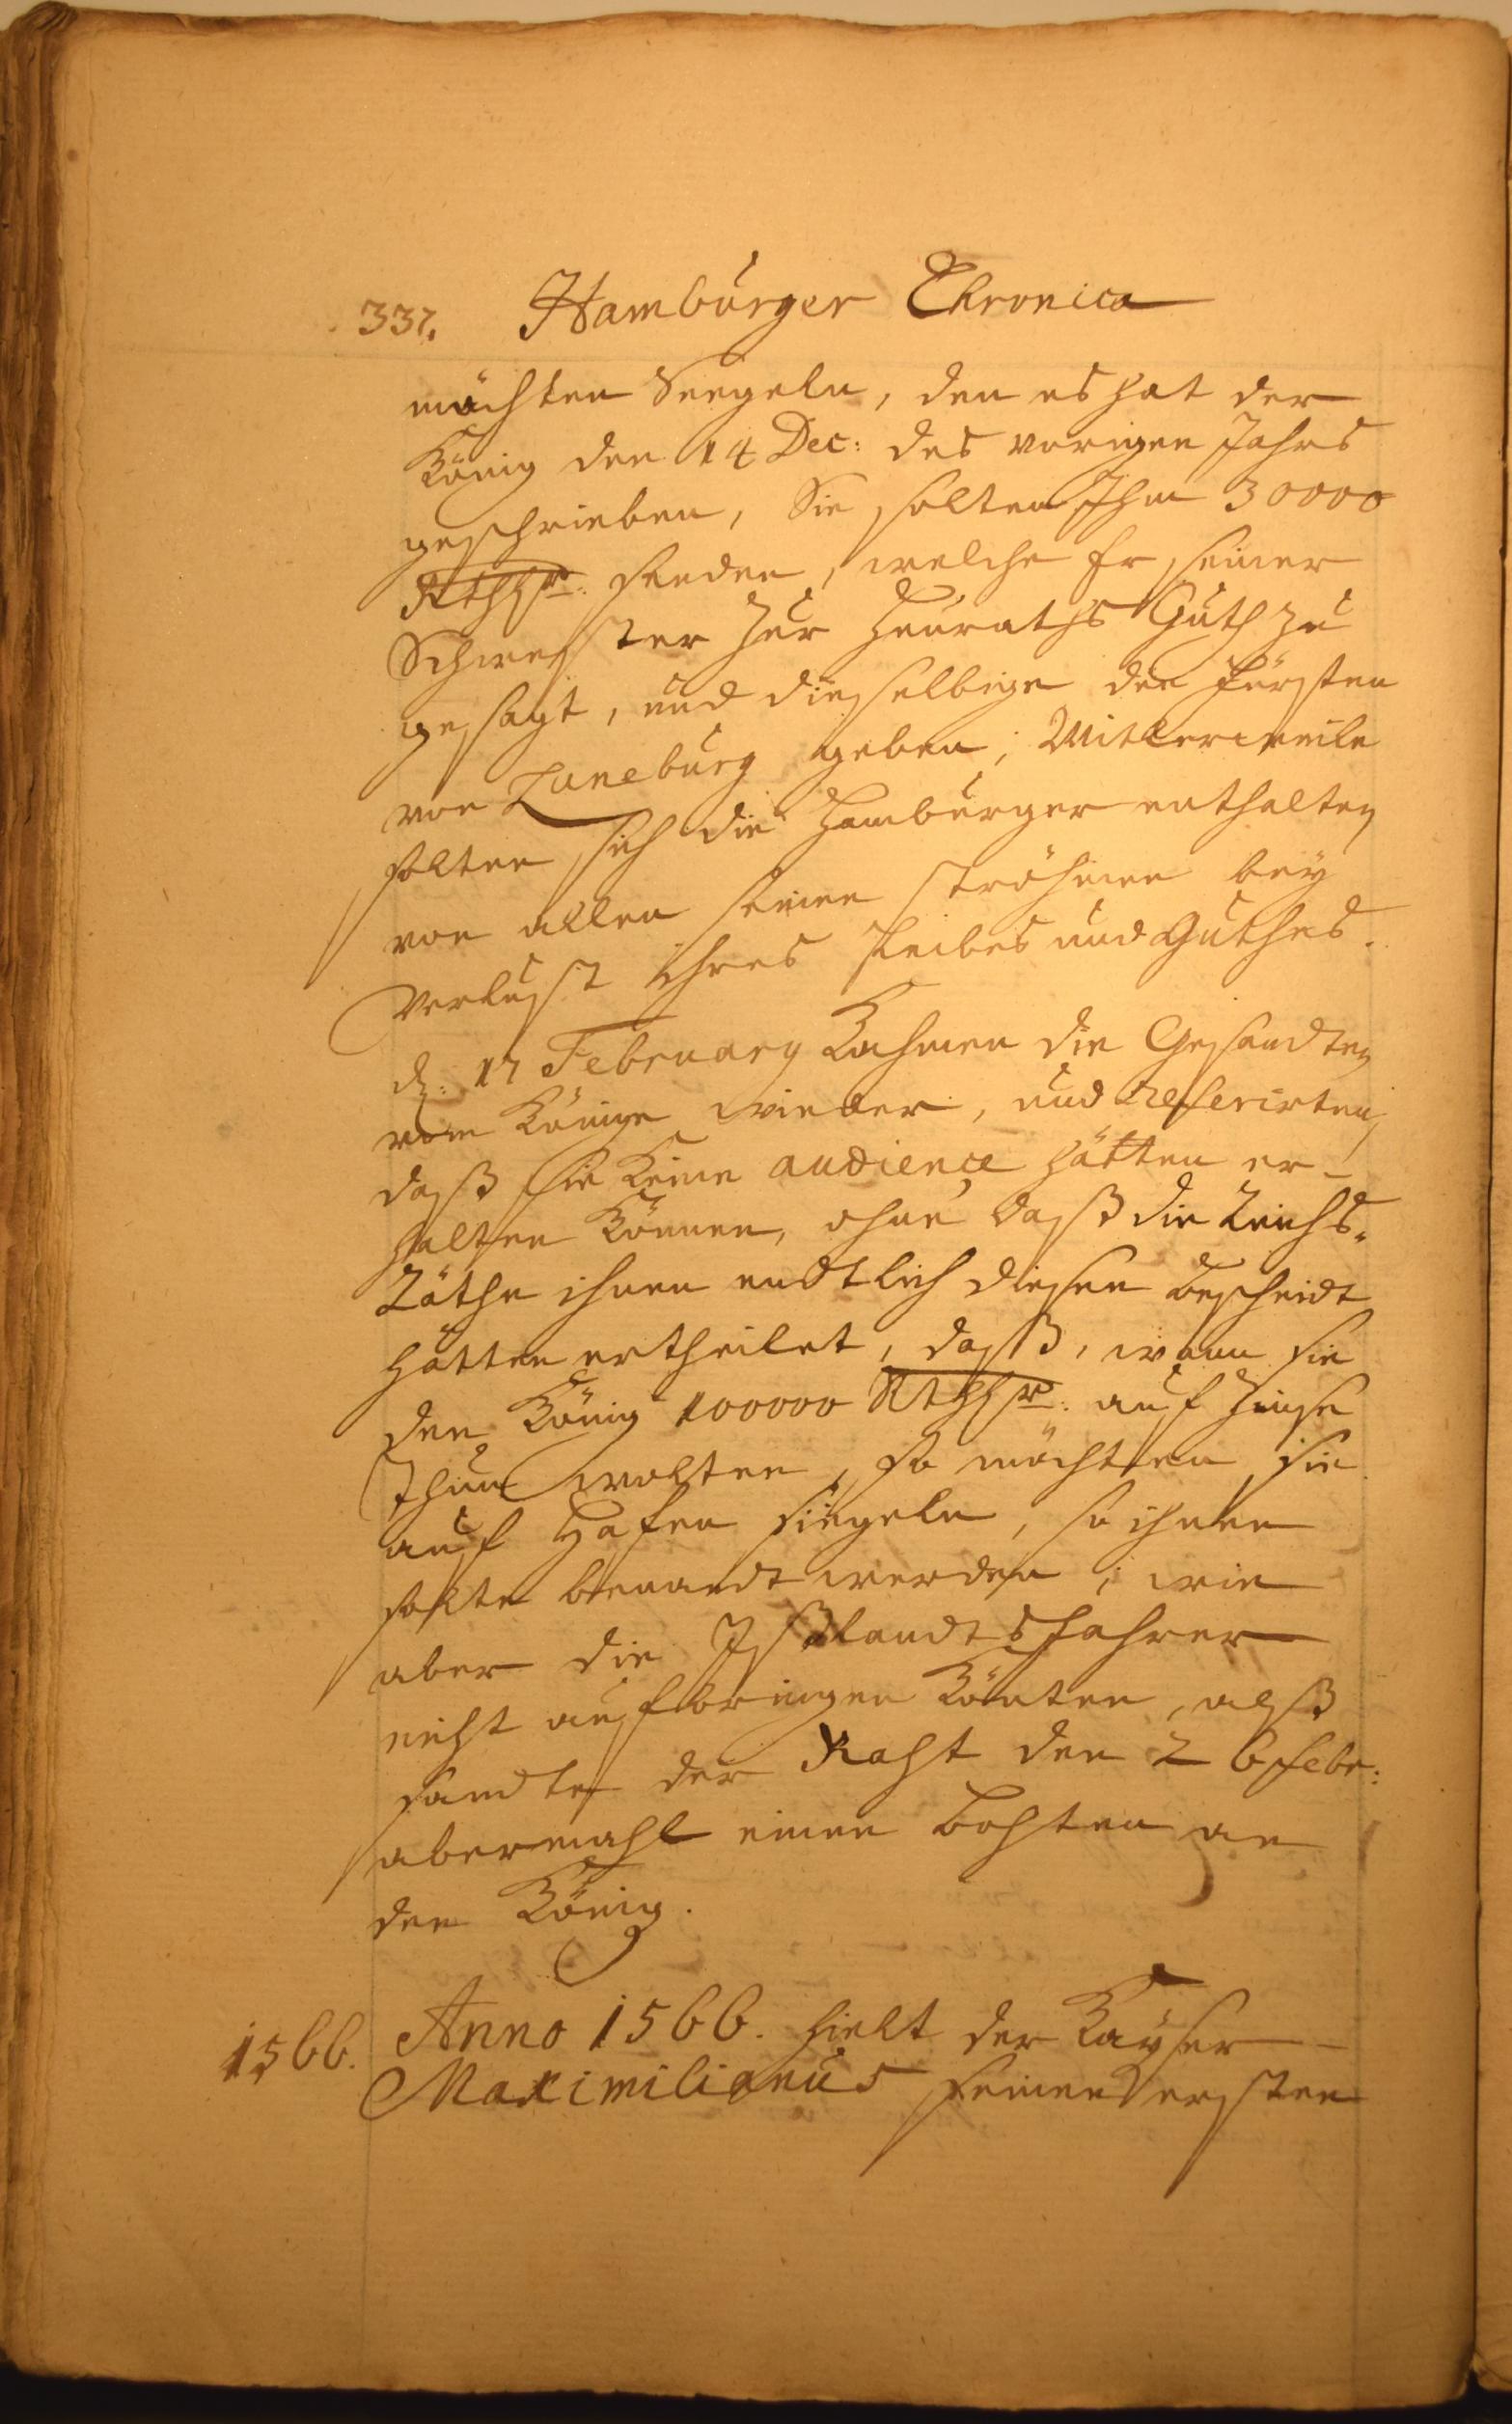 337. Hamburger Chronica
möchten Seegeln, den es hat der
König den 14 Dec: des vorigen Jahrs
geschrieben, Sie solten Ihm 30000
Rthlr: senden, welche Er seiner
Schwester zur Heuraths Guth zu
gesagt, und dieselbige den Fürsten
von Luneburg geben; Mitlerweile
solten sich die Hamburger enthalten
von allen seinen Ströhmen bey
Verlust ihres Leibes und Guthes.
d. 17 February Kahmen die Gesandten
vom Könige wieder, und Referirten,
daß sie Keine audience hätten er-
halten Können, ohne daß die Reichs-
Räthe ihnen endtlich diesen bescheidt
hätten ertheilet, daß, wann sie
den König 100000 Rthlr: auf Zinse
thun wolten, so möchten sie
auf Hafen siegeln, so ihnen
solte benandt werden; wie
aber die Ißlandtsfahrer
nicht aufbringen Könten, alß
sandte der Raht den 26 Febr:
abermahl einen bohten an
den König.
1566. Anno 1566. hielt der Kayser
Maximilianus seinen ersten